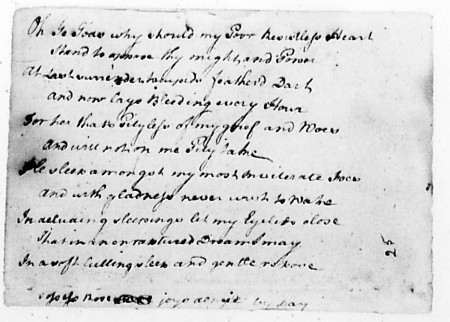 Oh Ye Gods why should my Poor Resistless Heart
Stand to oppose thy might and Power
At Last surrender to cupids feather'd Dart
and now lays Bleeding every Hour
For her that's Pityless of my grief and Woes
and will not on me Pity take
He sleep amongst my most Inveterate Foes
and with gladness never wish to Wake
In deluding sleepings let my Eyelids close
That in an enraptured Dream I may
In a soft lulling sleep and gentle repose
Possess those joys denied by Day
25